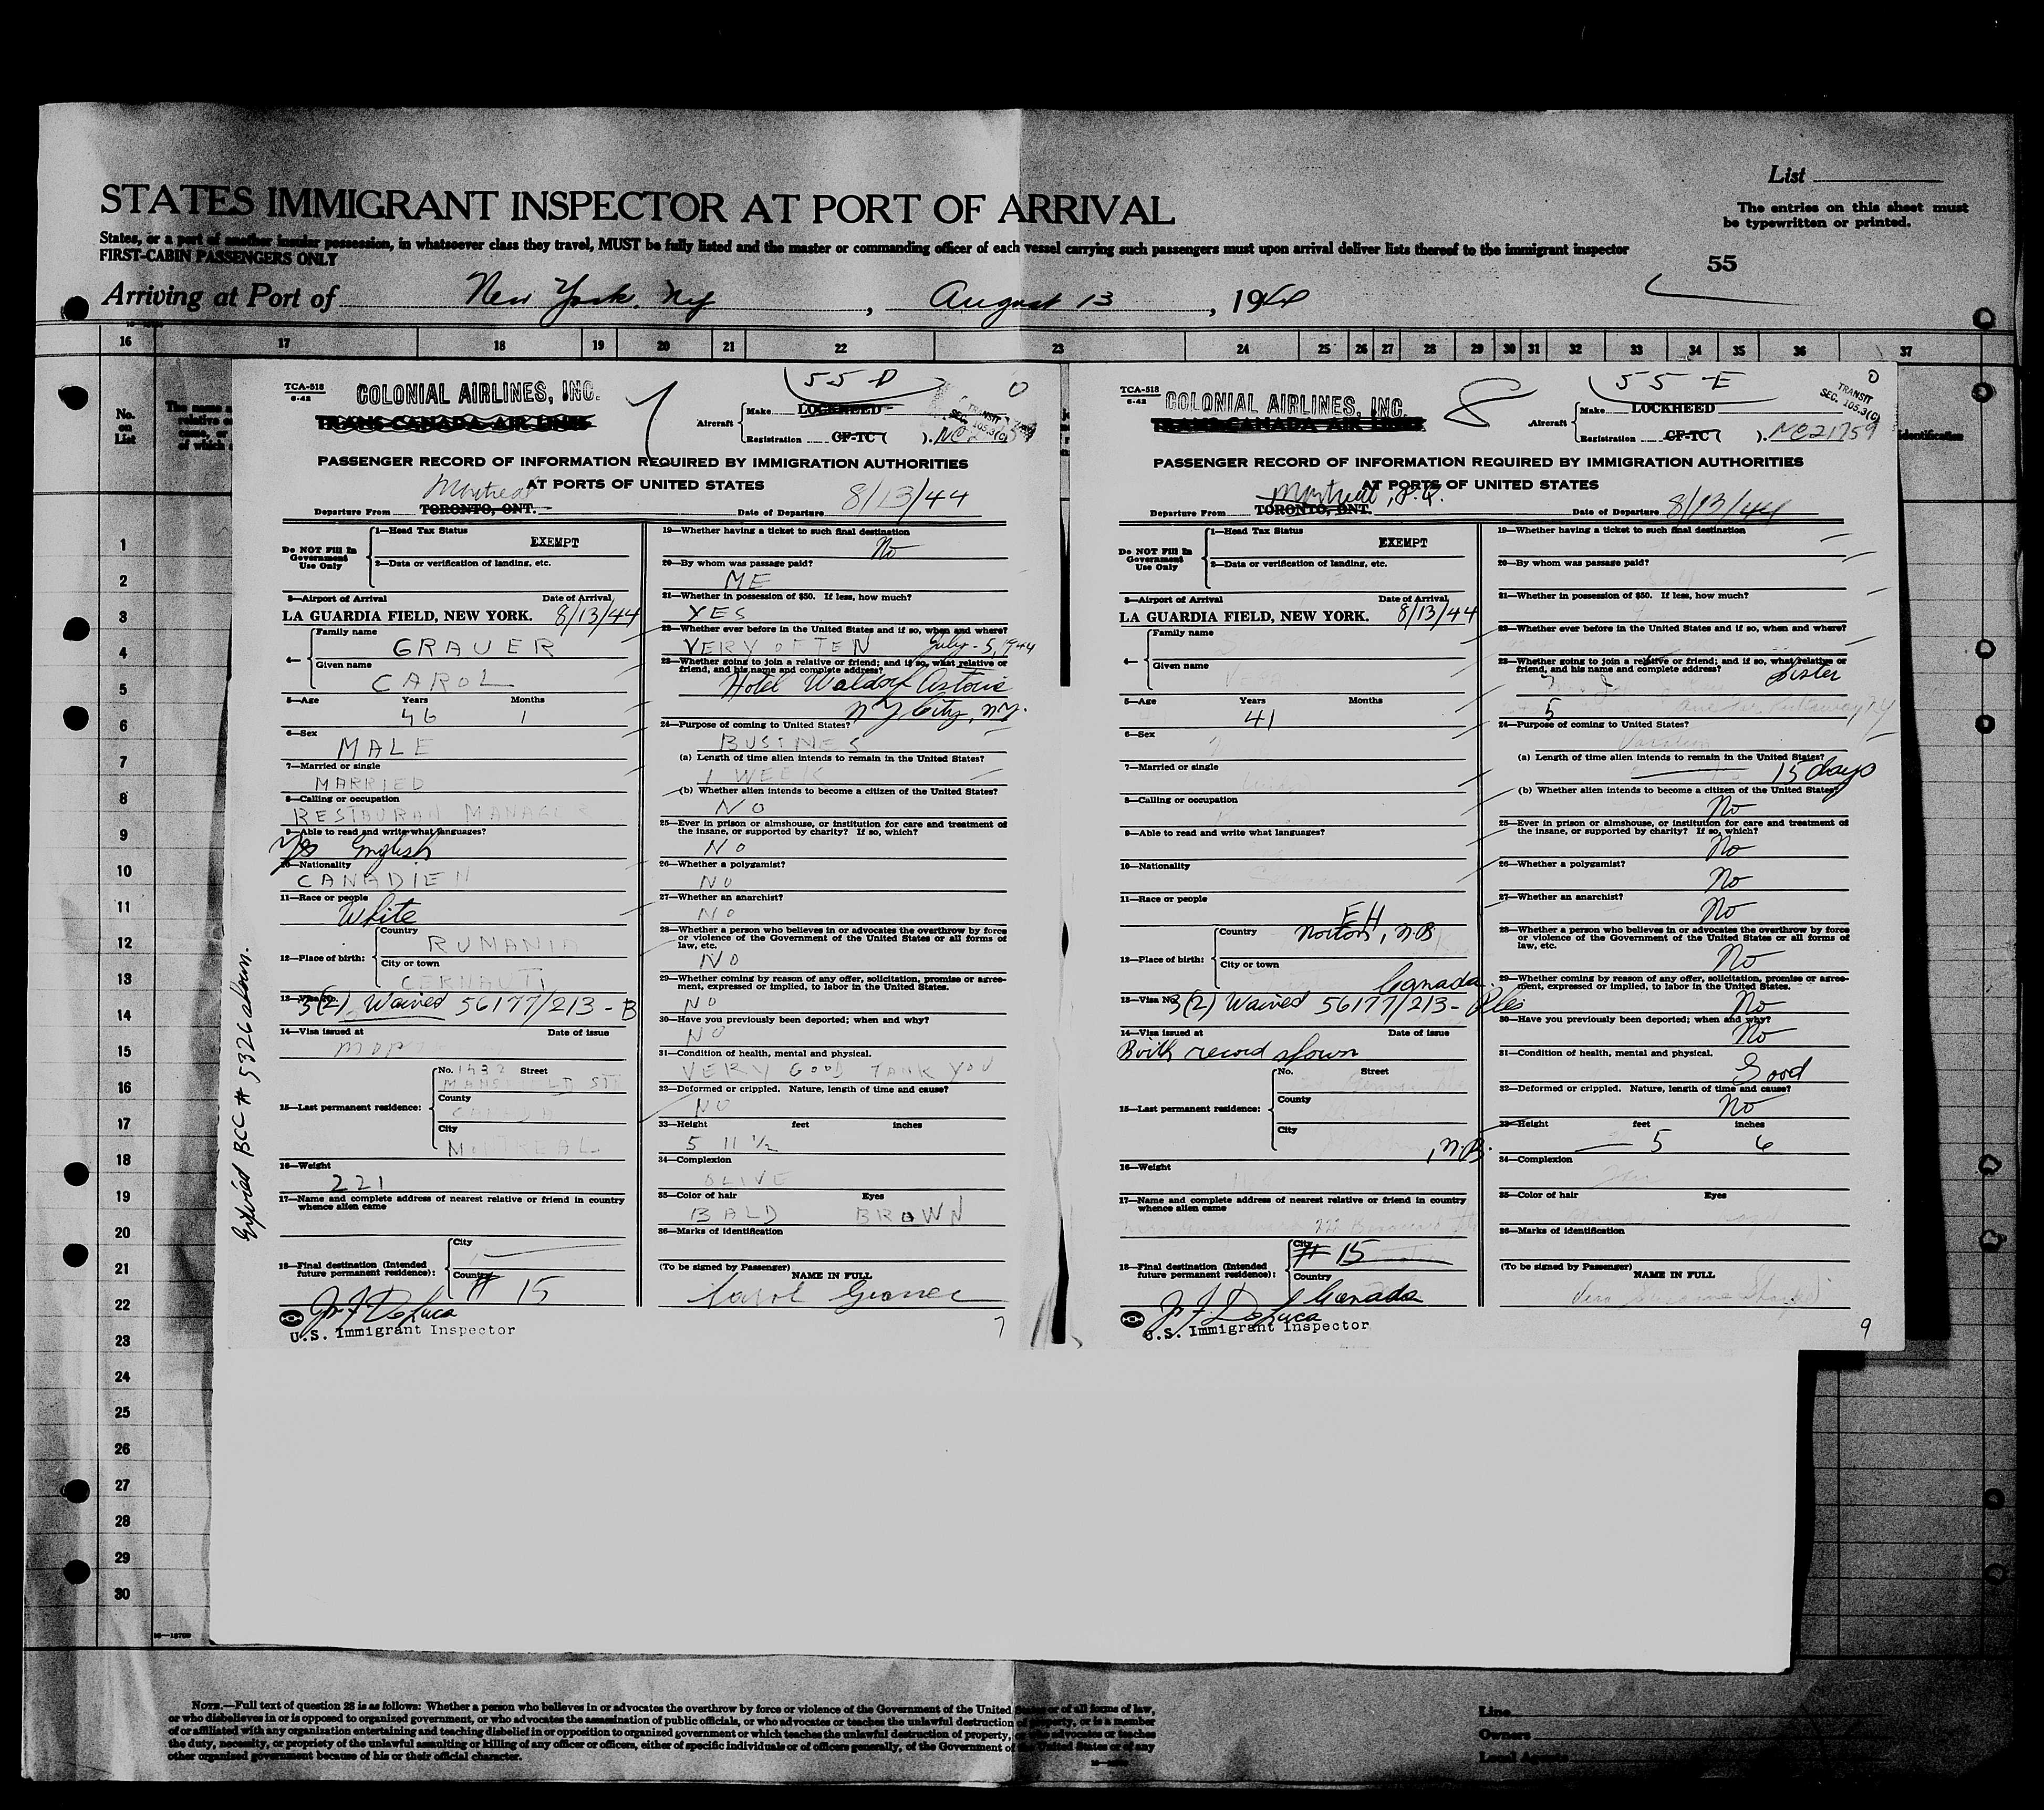 List
STATES IMMIGRANT INSPECTOR AT PORT OF ARRIVAL
The entries on this sheet must
be typewritten or printed.
States, or a port of another insular possession, in whatsoever class they travel, MUST be fully listed and the master or commanding officer of each vessel carrying such passengers must upon arrival deliver lists thereof to the immigrant inspector
FIRST-CABIN PASSENGERS ONLY
55
Arriving at Port of New York, NY, August 13, 1944
16 17 18 19 20 21 22 23 24 25 26 27 28 29 30 31 32 33 34 35 36 37
No.
on
List
1
2
3
4
5
6
7
8
9
10
11
12
13
14
15
16
17
18
19
20
21
22
23
24
25
26
27
28
29
30
TCA-518
6-42
COLONIAL AIRLINES, INC.
TRANS-CANADA AIR LINES
55-D
Aircraft
Make LOCKHEED
Registration CF-TC( ).
TRANSIT
SEC. 105.3(C)
PASSENGER RECORD OF INFORMATION REQUIRED BY IMMIGRATION AUTHORITIES
AT PORTS OF UNITED STATES
Departure From TORONTO, ONT. Montreal
Date of Departure 8/13/44
Do NOT Fill In
Government
Use Only
1—Head Tax Status
EXEMPT
2—Data or verification of landing, etc.
3—Airport of Arrival Date of Arrival,
LA GUARDIA FIELD, NEW YORK. 8/13/44
4—
Family name
GRAUER
Given name
CAROL
5—Age Years Months
46 1
6—Sex
MALE
7—Married or single
MARRIED
8—Calling or occupation
RESTAURAN MANAGER
9—Able to read and write what languages?
Yes English
10—Nationality
CANADIEN
11—Race or people
White
12—Place of birth:
Country
RUMANIA
City or town
CERNAUTI
13—Visa No.
3(2) Waived 56177/213-B
14—Visa issued at Date of issue
15—Last permanent residence:
No. 1432 Street
MANSFIELD STR
County
CANADA
City
MONTREAL
16—Weight
221
17—Name and complete address of nearest relative or friend in country
whence alien came
18—Final destination (Intended
future permanent residence):
City
Country
# 15
J. F. DeLuca
U.S. Immigrant Inspector
BCC # 5326 shown.
19—Whether having a ticket to such final destination
No
20—By whom was passage paid?
ME
21—Whether in possession of $50. If less, how much?
YES
22—Whether ever before in the United States and if so, when and where?
VERY OFTEN July - 5, 1944
23—Whether going to join a relative or friend; and if so, what relative or
friend, and his name and complete address?
Hotel Waldorf Astoria
N Y City, N.Y.
24—Purpose of coming to United States?
BUSINES
(a) Length of time alien intends to remain in the United States?
1 WEEK
(b) Whether alien intends to become a citizen of the United States?
NO
25—Ever in prison or almshouse, or institution for care and treatment of
the insane, or supported by charity? If so, which?
NO
26—Whether a polygamist?
NO
27—Whether an anarchist?
NO
28—Whether a person who believes in or advocates the overthrow by force
or violence of the Government of the United States or all forms of
law, etc.
NO
29—Whether coming by reason of any offer, solicitation, promise or agree-
ment, expressed or implied, to labor in the United States.
NO
30—Have you previously been deported; when and why?
NO
31—Condition of health, mental and physical.
VERY GOOD TANK YOU
32—Deformed or crippled. Nature, length of time and cause?
NO
33—Height feet inches
5 11 1/2
34—Complexion
OLIVE
35—Color of hair Eyes
BALD BROWN
36—Marks of identification
(To be signed by Passenger)
NAME IN FULL
Carol Grauer
7
TCA-518
6-42
COLONIAL AIRLINES, INC.
TRANS-CANADA AIR LINES
8
55-E
Aircraft
Make LOCKHEED
Registration CF-TC( ). NC21759
TRANSIT
SEC. 105.3(C)
PASSENGER RECORD OF INFORMATION REQUIRED BY IMMIGRATION AUTHORITIES
AT PORTS OF UNITED STATES
Departure From TORONTO, ONT. Montreal, P.Q.
Date of Departure 8/13/44
Do NOT Fill In
Government
Use Only
1—Head Tax Status
EXEMPT
2—Data or verification of landing, etc.
3—Airport of Arrival Date of Arrival,
LA GUARDIA FIELD, NEW YORK. 8/13/44
4—
Family name
Given name
5—Age Years Months
41
6—Sex
7—Married or single
8—Calling or occupation
9—Able to read and write what languages?
10—Nationality
11—Race or people
EH
12—Place of birth:
Country
Norton, N.B
City or town
Canada
13—Visa No.
3(2) Waived 56177/213-
14—Visa issued at Date of issue
Birth record shown
15—Last permanent residence:
No. Street
County
City
, N.B.
16—Weight
17—Name and complete address of nearest relative or friend in country
whence alien came
18—Final destination (Intended
future permanent residence):
City
# 15
Country
Canada
J. F. DeLuca
U.S. Immigrant Inspector
19—Whether having a ticket to such final destination
20—By whom was passage paid?
21—Whether in possession of $50. If less, how much?
22—Whether ever before in the United States and if so, when and where?
23—Whether going to join a relative or friend; and if so, what relative or
friend, and his name and complete address?
Sister
24—Purpose of coming to United States?
Vacation
(a) Length of time alien intends to remain in the United States?
15 days
(b) Whether alien intends to become a citizen of the United States?
No
25—Ever in prison or almshouse, or institution for care and treatment of
the insane, or supported by charity? If so, which?
No
26—Whether a polygamist?
No
27—Whether an anarchist?
No
28—Whether a person who believes in or advocates the overthrow by force
or violence of the Government of the United States or all forms of
law, etc.
No
29—Whether coming by reason of any offer, solicitation, promise or agree-
ment, expressed or implied, to labor in the United States.
No
30—Have you previously been deported; when and why?
No
31—Condition of health, mental and physical.
Good
32—Deformed or crippled. Nature, length of time and cause?
No
33—Height feet inches
5 6
34—Complexion
35—Color of hair Eyes
36—Marks of identification
(To be signed by Passenger)
NAME IN FULL
9
NOTE.—Full text of question 28 is as follows: Whether a person who believes in or advocates the overthrow by force or violence of the Government of the United States or of all forms of law,
or who disbelieves in or is opposed to organized government, or who advocates the assassination of public officials, or who advocates or teaches the unlawful destruction of property, or is a member
of or affiliated with any organization entertaining and teaching disbelief in or opposition to organized government or which teaches the unlawful destruction of property, or who advocates or teaches
the duty, necessity, or propriety of the unlawful assaulting or killing of any officer or officers, either of specific individuals or of officers generally, of the Government of the United States or of any
other organized government because of his or their official character.
Line
Owners
Local Agents